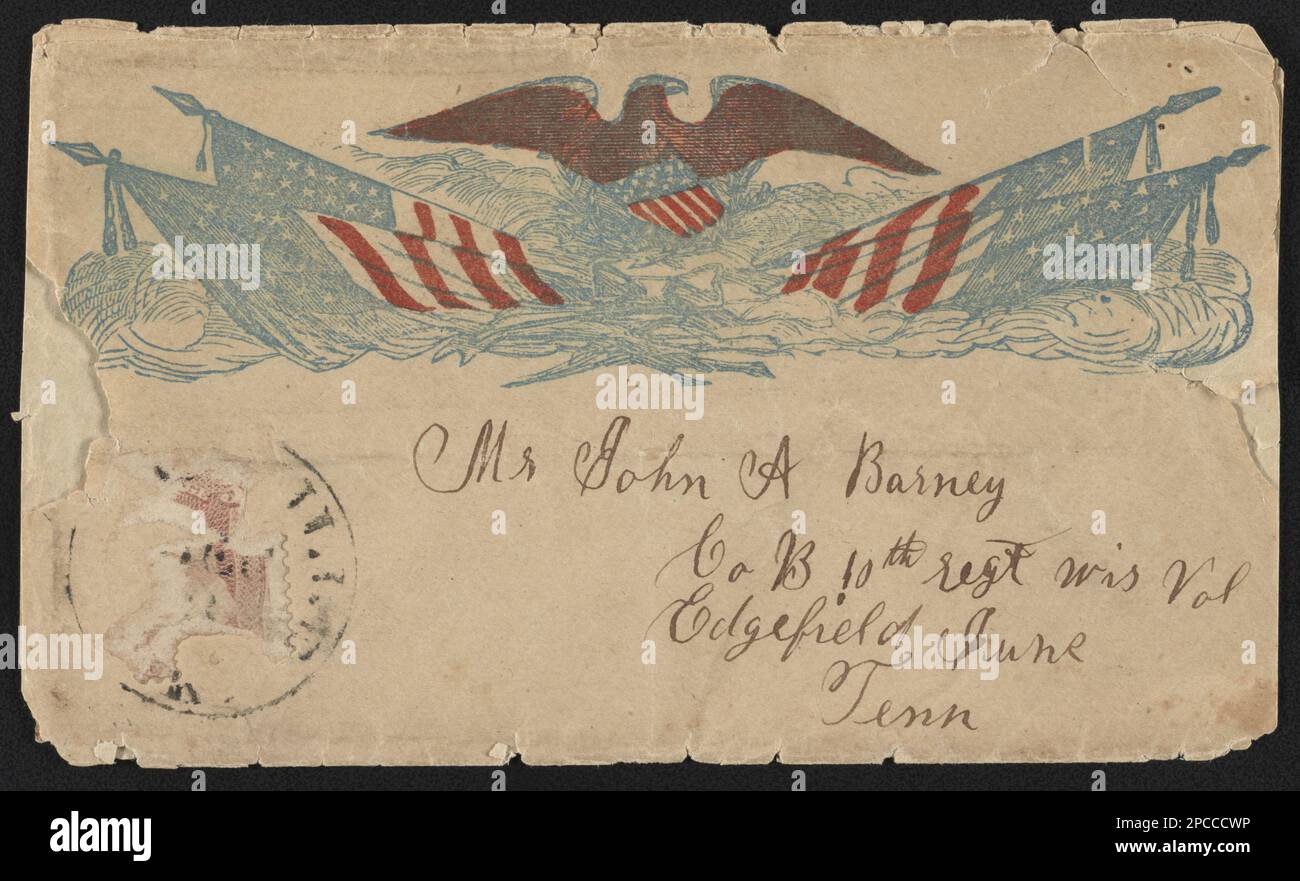 Mr John A Barney
Co B 10th regt wis Vol
Edgefield June
Tenn
alamy
Image ID: 2PCCCWP
www.alamy.com